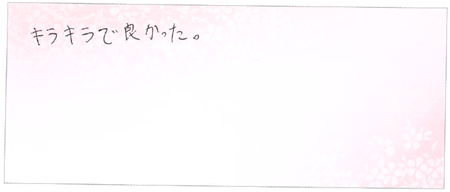 キラキラで良かった。